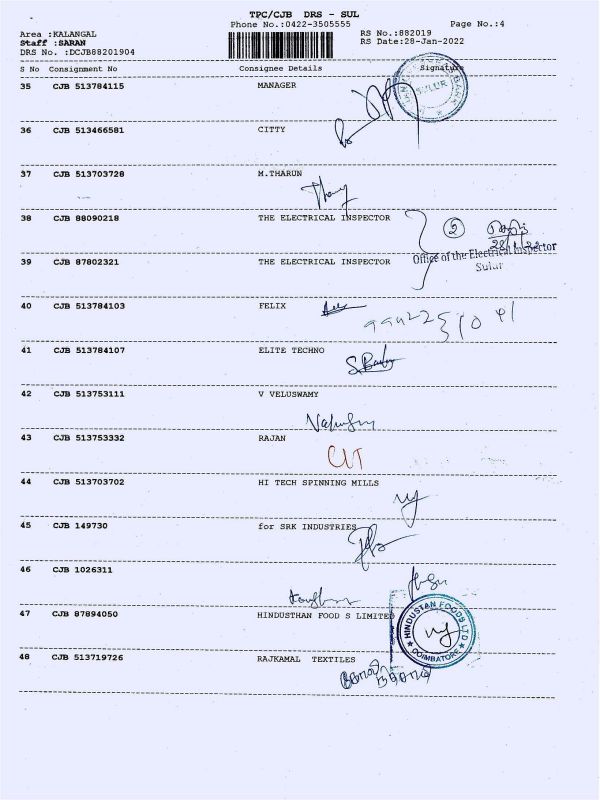 TPC/CJB DRS - SUL
Phone No.:0422-3505555 Page No.:4
Area :KALANGAL RS No.:882019
Staff :SARAN RS Date:28-Jan-2022
DRS No. :DCJB88201904
S No Consignment No Consignee Details Signature
35 CJB 513784115 MANAGER
SULUR
36 CJB 513466581 CITTY
37 CJB 513703728 M.THARUN
38 CJB 88090218 THE ELECTRICAL INSPECTOR
2
39 CJB 87802321 THE ELECTRICAL INSPECTOR
Office of the Electrical Inspector
Sulur
40 CJB 513784103 FELIX
41 CJB 513784107 ELITE TECHNO
42 CJB 513753111 V VELUSWAMY
43 CJB 513753332 RAJAN
44 CJB 513703702 HI TECH SPINNING MILLS
45 CJB 149730 for SRK INDUSTRIES
46 CJB 1026311
47 CJB 87894050 HINDUSTHAN FOOD S LIMITED
HINDUSTAN FOODS LTD
COIMBATORE
48 CJB 513719726 RAJKAMAL TEXTILES